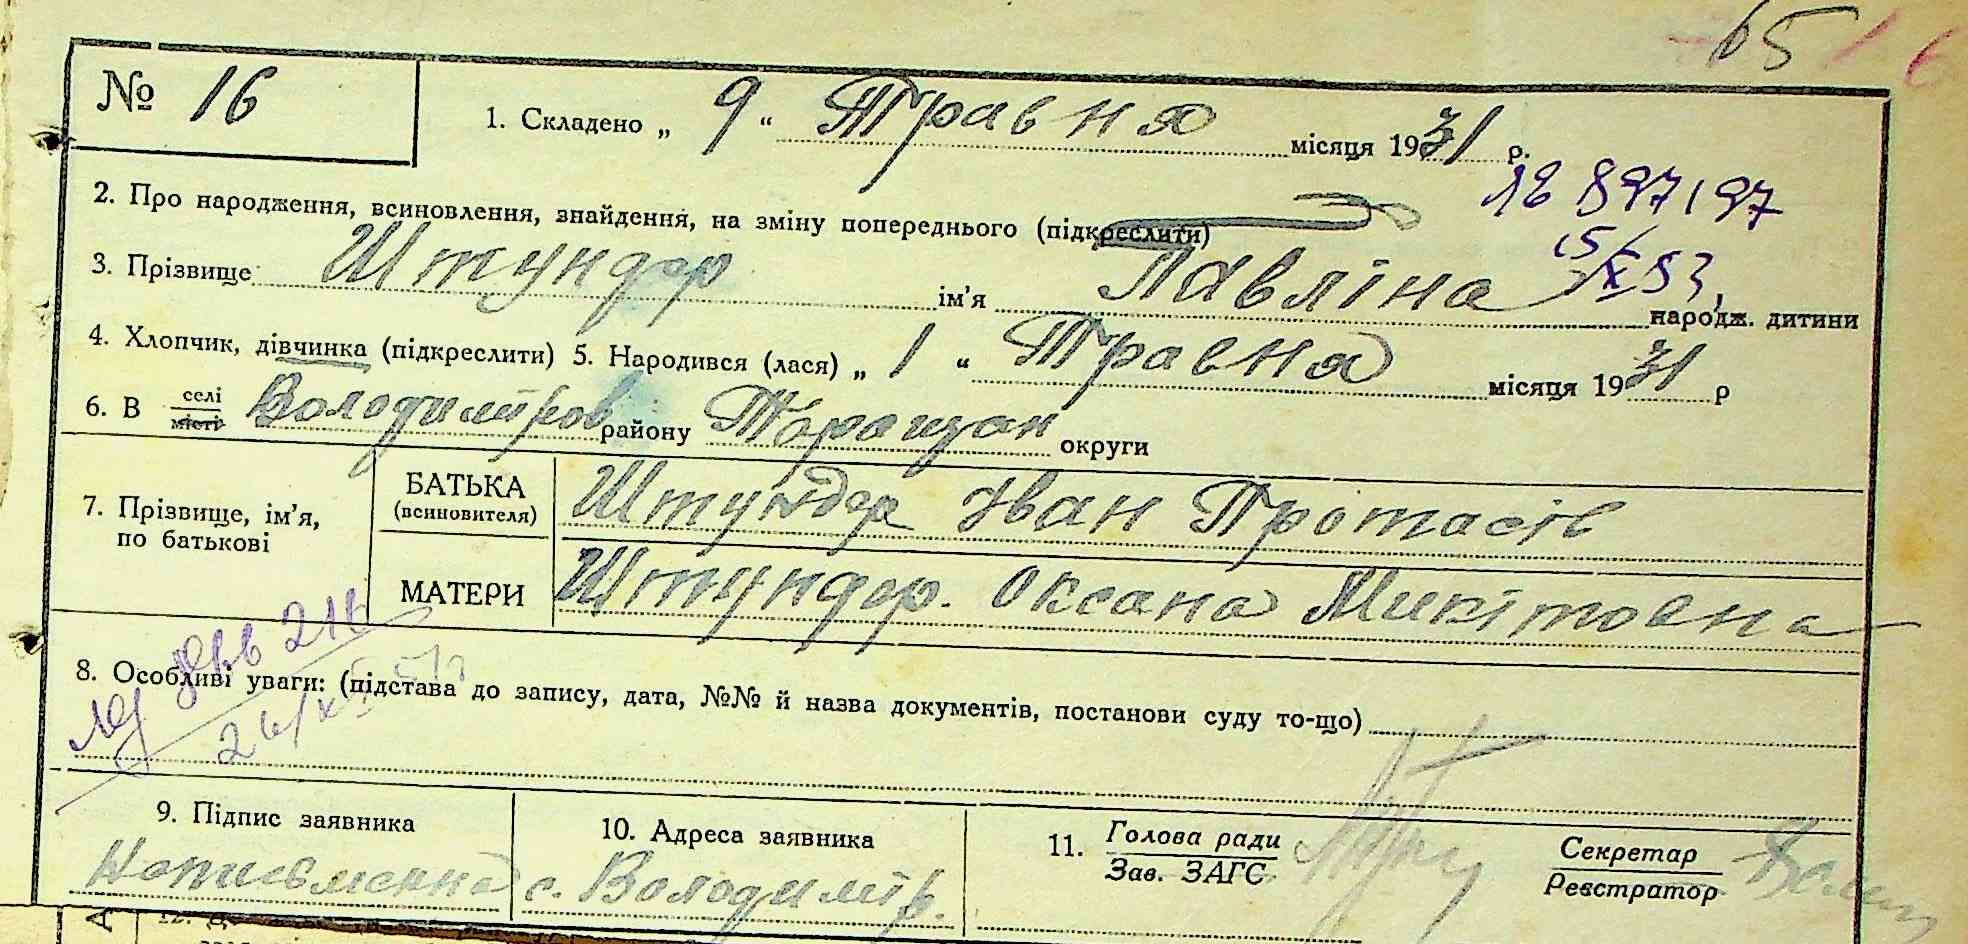 65 16
№ 16
1. Складено „ 9 “ Травня місяця 1931 р.
2. Про народження, всиновлення, знайдення, на зміну попереднього (підкреслити)
3. Прізвище Штундер ім'я Павліна народж. дитини
4. Хлопчик, дівчинка (підкреслити) 5. Народився (лася) „ 1 “ Травня місяця 1931 р
6. В селі місті Володимиров району Таращан округи
7. Прізвище, ім'я, по батькові
БАТЬКА (всиновителя) Штундер Іван Протасів
МАТЕРИ Штундер. Оксана Микітовна
8. Особливі уваги: (підстава до запису, дата, №№ й назва документів, постанови суду то-що)
9. Підпис заявника
Неписьменна
10. Адреса заявника
с. Володимір.
11. Голова ради
Зав. ЗАГС
Секретар
Реєстратор